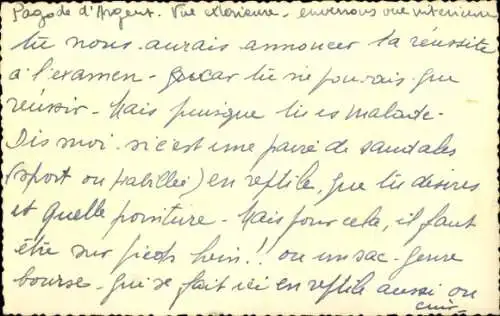 Pagode d'Argent. Vue extérieure - enverrons vue intérieure
tu nous aurais annoncer ta réussite
à l'examen - car tu ne pouvais que
réussir - Mais puisque tu es malade -
Dis moi si c'est une paire de sandales
(sport ou habillée) en reptile, que tu désires
et quelle pointure - Mais pour cela, il faut
être sur pieds hein!! ou un sac genre
bourse - qui se fait ici en reptile aussi ou
cuir